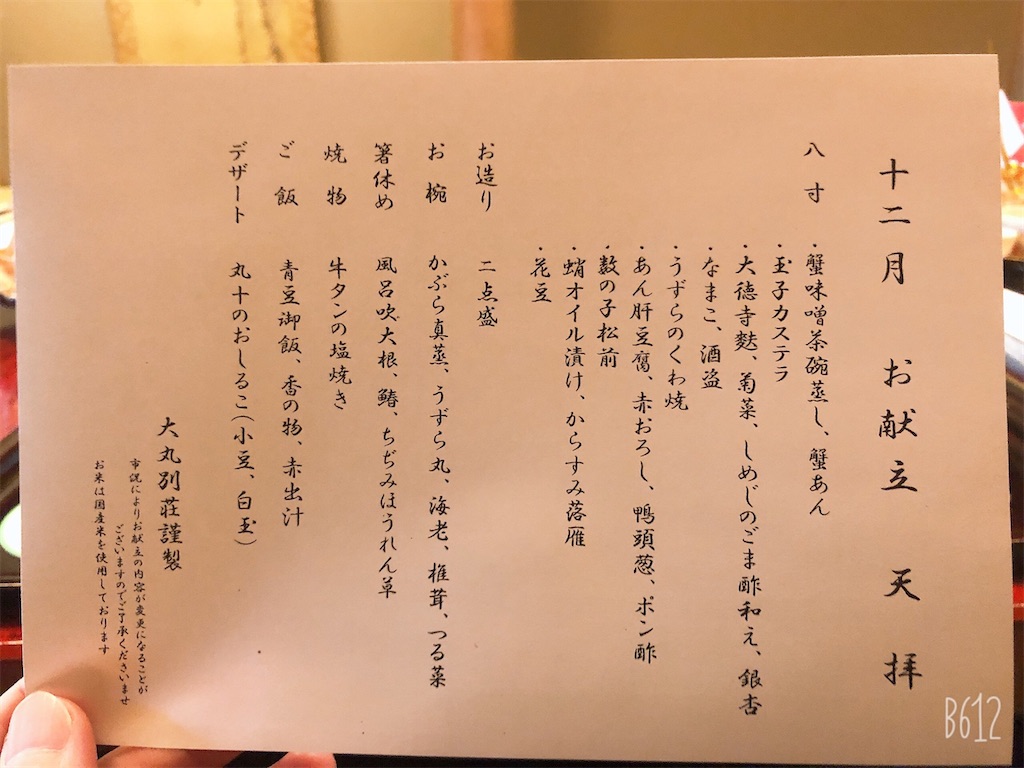 十二月　お献立　天拝
八寸
・蟹味噌茶碗蒸し、蟹あん
・玉子カステラ
・大徳寺麩、菊菜、しめじのごま酢和え、銀杏
・なまこ、酒盗
・うずらのくわ焼
・あん肝豆腐、赤おろし、鴨頭葱、ポン酢
・数の子松前
・蛸オイル漬け、からすみ落雁
・花豆
お造り　二点盛
お椀　かぶら真蒸、うずら丸、海老、椎茸、つる菜
箸休め　風呂吹大根、鰆、ちぢみほうれん草
焼物　牛タンの塩焼き
ご飯　青豆御飯、香の物、赤出汁
デザート　丸十のおしるこ(小豆、白玉)
大丸別荘謹製
市況によりお献立の内容が変更になることが
ございますのでご了承くださいませ
お米は国産米を使用しております
B612